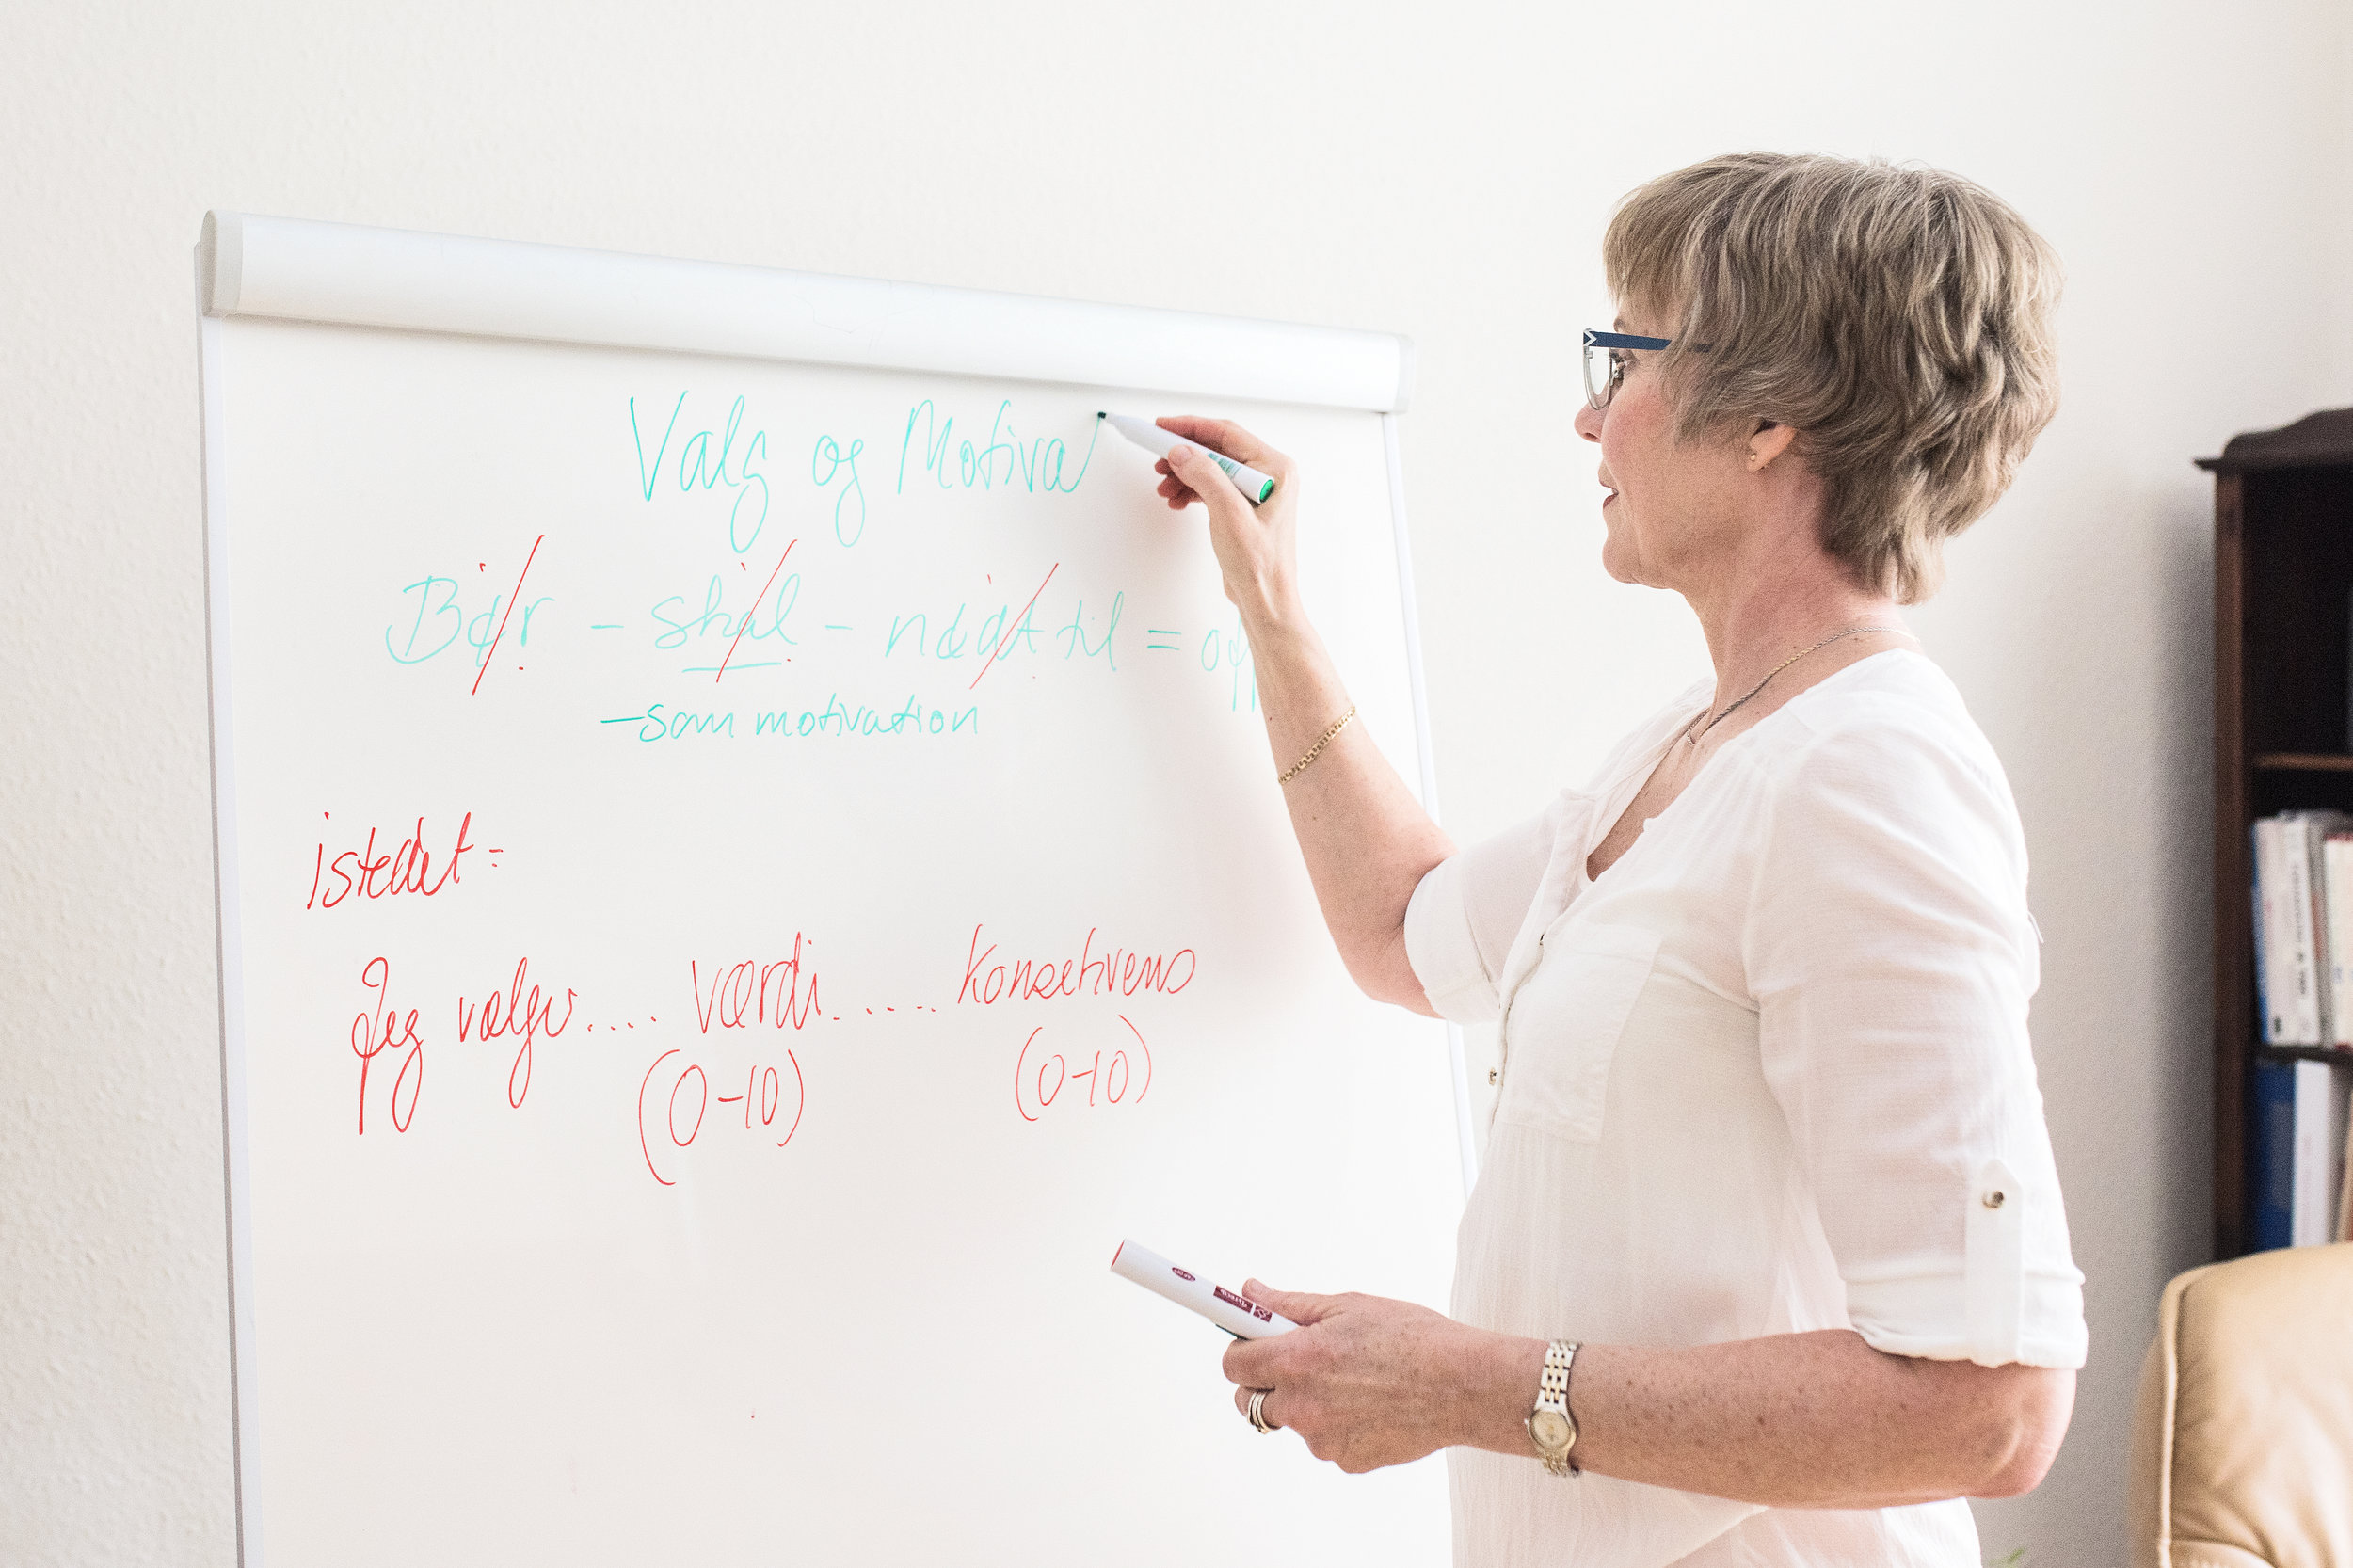 Valg og Motiva
Bør - skal - nødt til = op
- som motivation
istedet =
Jeg vælger.... værdi...... konsekvens
(0-10) (0-10)